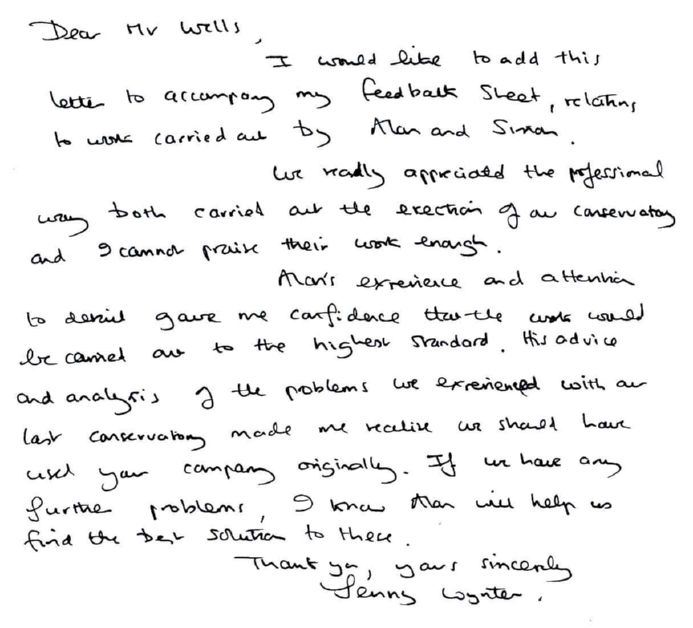 Dear Mr Wells,
I would like to add this
letter to accompany my feedback sheet, relating
to work carried out by Alan and Simon.
We really appreciated the professional
way both carried out the erection of our conservatory
and I cannot praise their work enough.
Alan's experience and attention
to detail gave me confidence that the work would
be carried out to the highest standard. His advice
and analysis of the problems we experienced with our
last conservatory made me realise we should have
used your company originally. If we have any
further problems, I know Alan will help us
find the best solution to these.
Thank you, yours sincerely
Jenny Wynter.